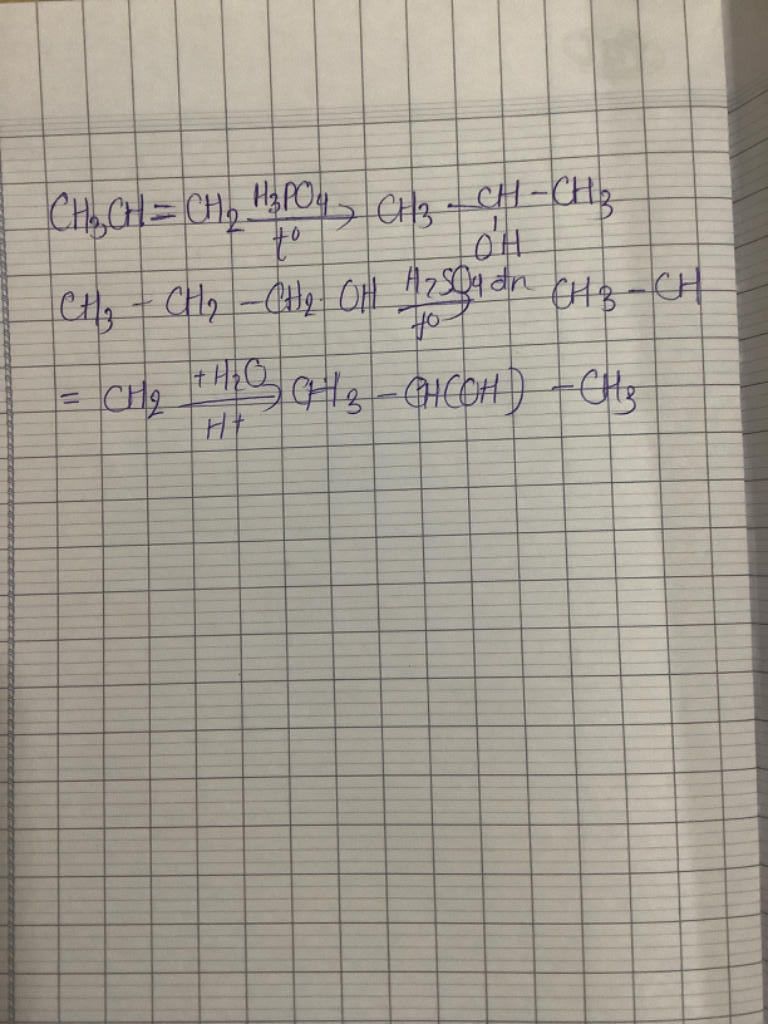 CH3CH = CH2 H3PO4/t° → CH3 – CH – CH3
OH
CH3 – CH2 – CH2 OH H2SO4 đn/t° → CH3 – CH
= CH2 +H2O/H+ → CH3 – CH(OH) – CH3